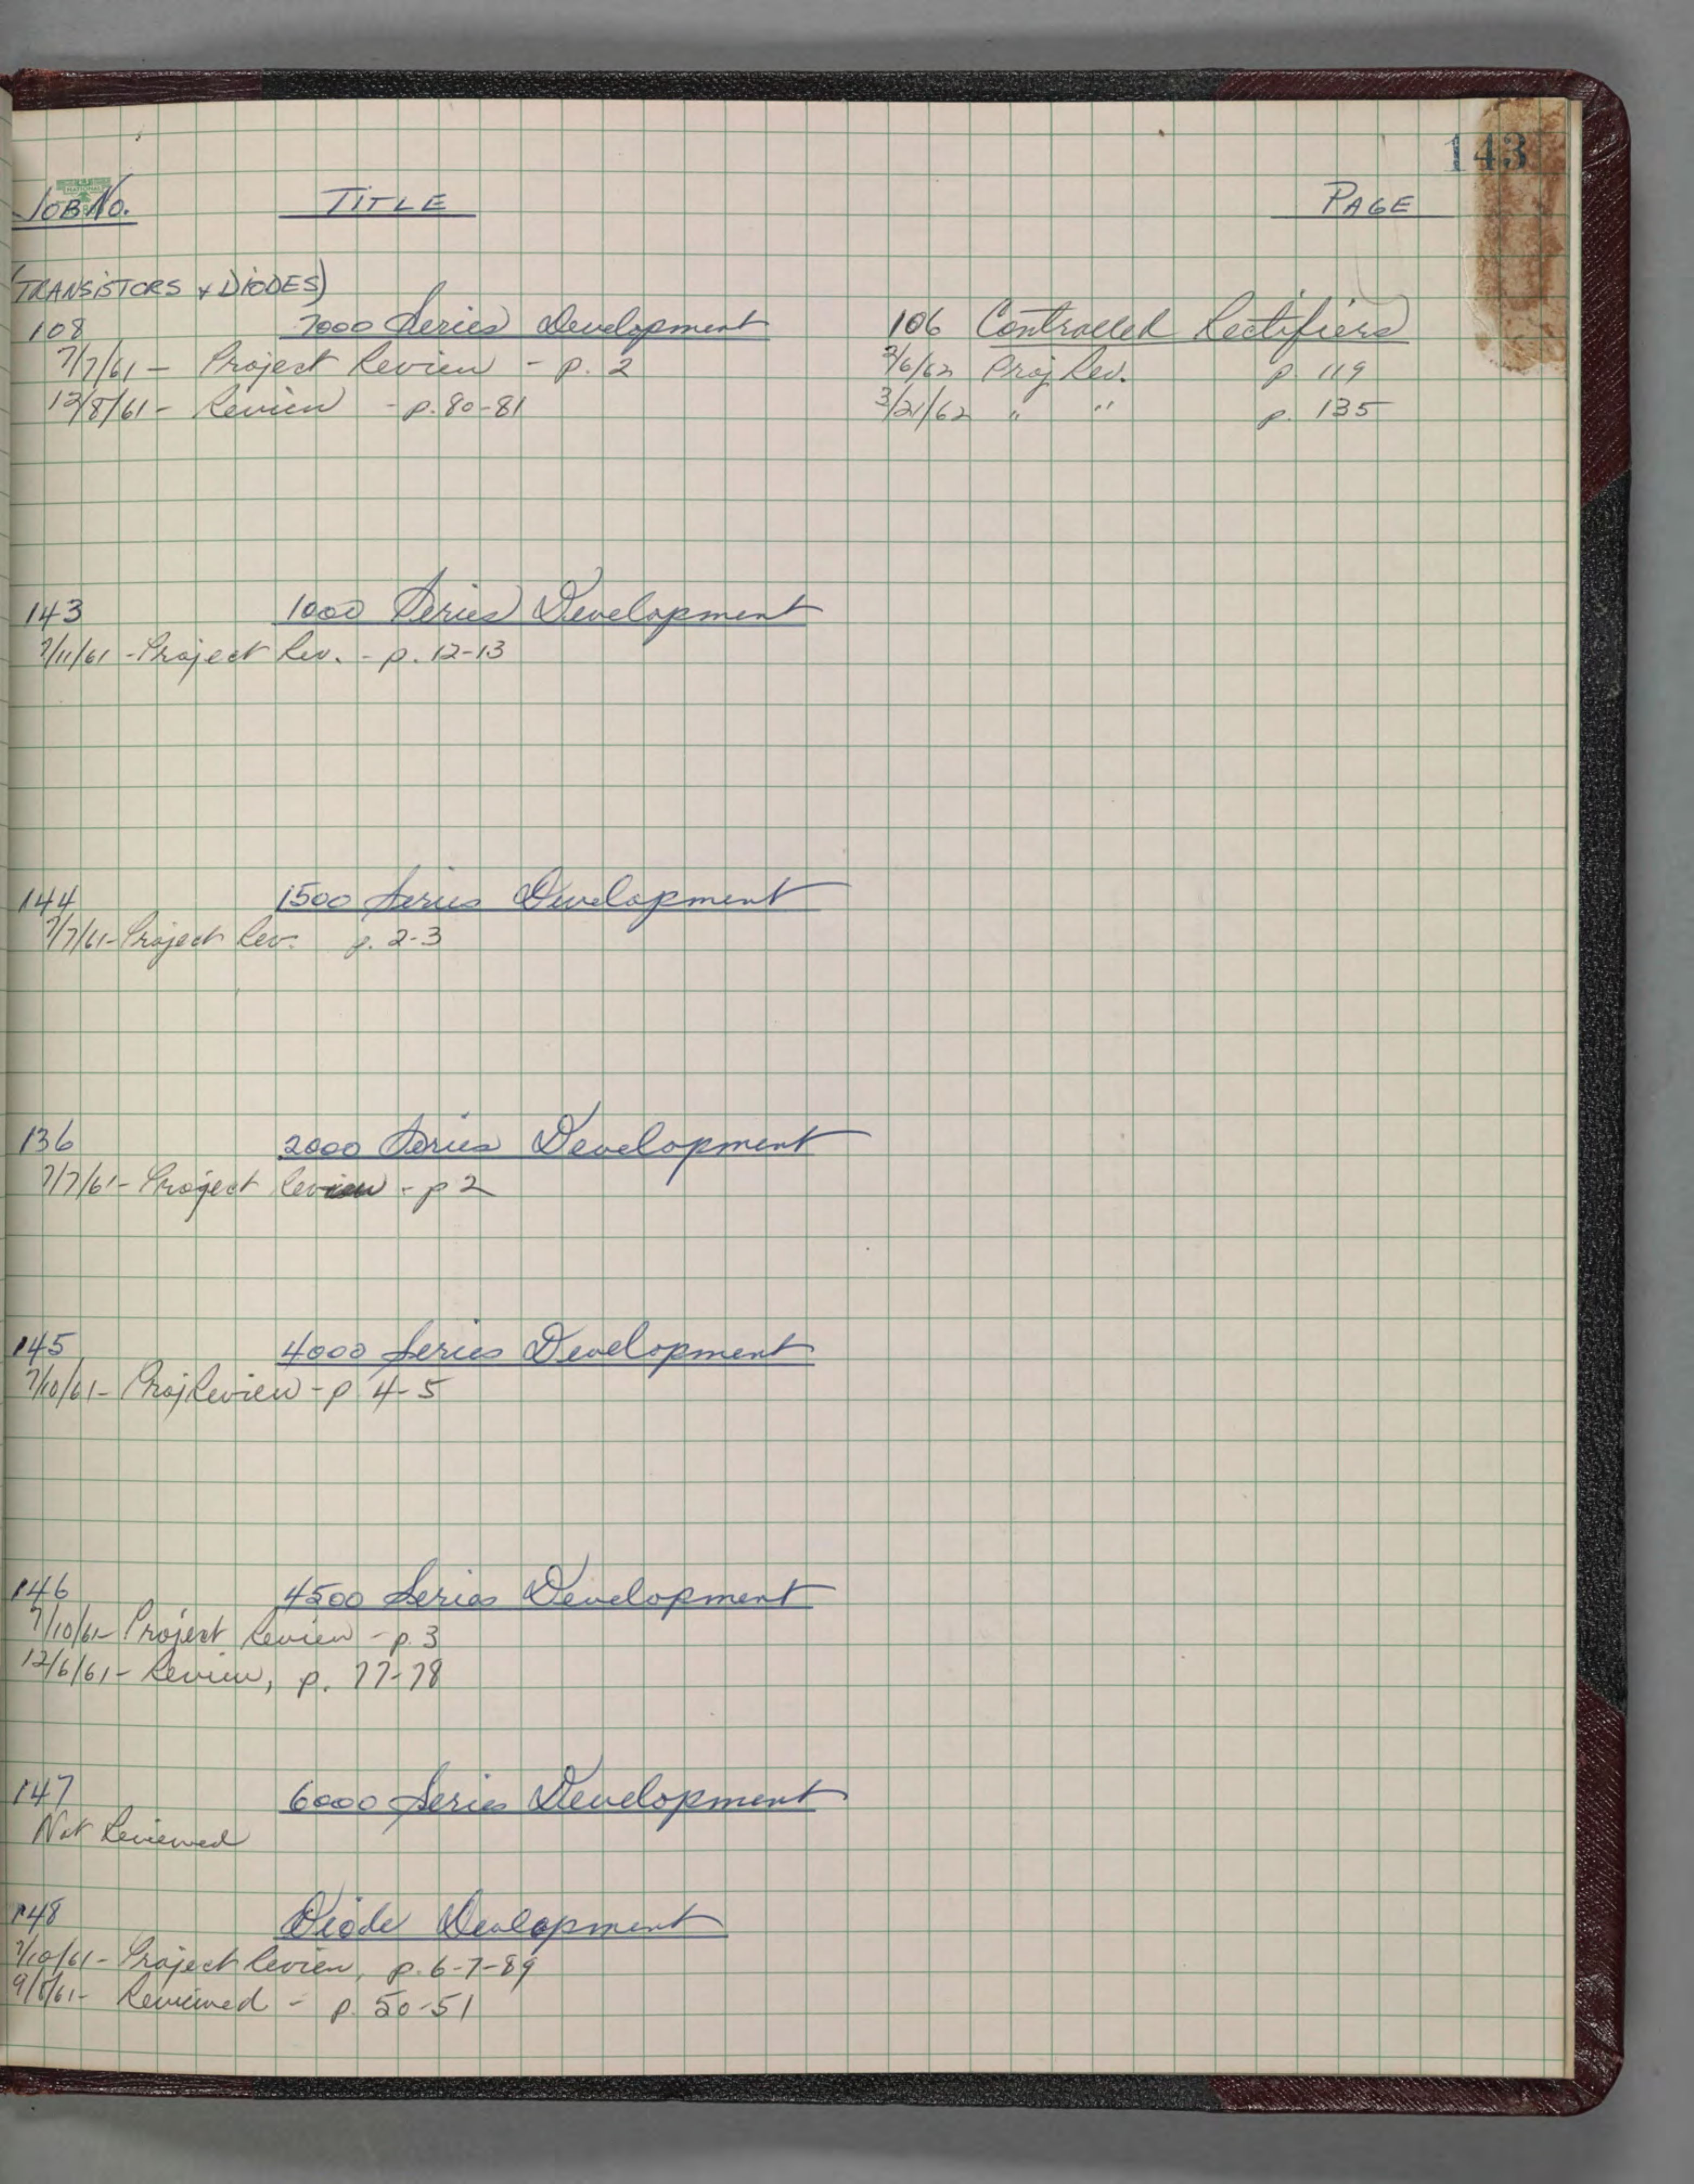 143
JOB No. TITLE PAGE
(TRANSISTORS & DIODES)
108 7000 Series Development
7/7/61 - Project Review - p. 2
12/8/61 - Review - p. 80-81
106 Controlled Rectifiers
2/6/62 Proj Rev. p. 119
3/21/62 " " p. 135
143 1000 Series Development
7/11/61 - Project Rev. - p. 12-13
144 1500 Series Development
7/7/61 - Project Rev. p. 2-3
136 2000 Series Development
7/7/61 - Project Review - p 2
145 4000 Series Development
7/10/61 - Proj Review - p 4-5
146 4500 Series Development
7/10/61 - Project Review - p. 3
12/6/61 - Review, p. 77-78
147 6000 Series Development
Not Reviewed
148 Diode Development
7/10/61 - Project Review, p. 6-7-89
9/8/61 - Reviewed - p. 50-51